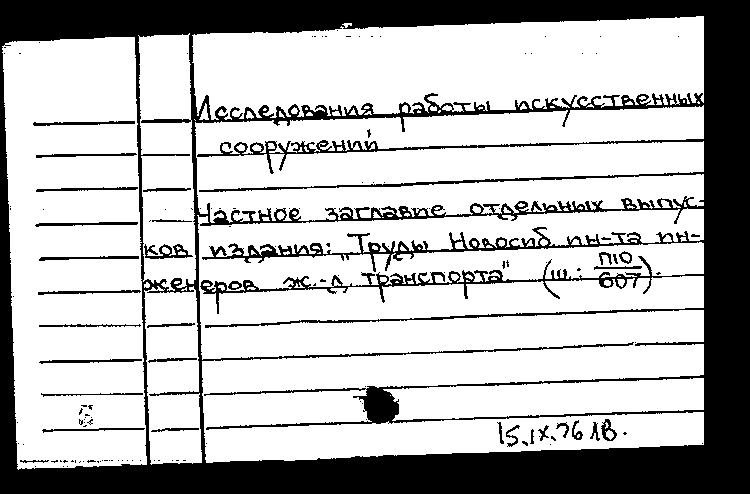 Исследования работы искусственных
сооружений
Частное заглавие отдельных выпус-
ков издания: „Труды Новосиб ин-та ин-
женеров ж.-д. транспорта". (ш.: П10/607).
15.IX.76 ЛВ.